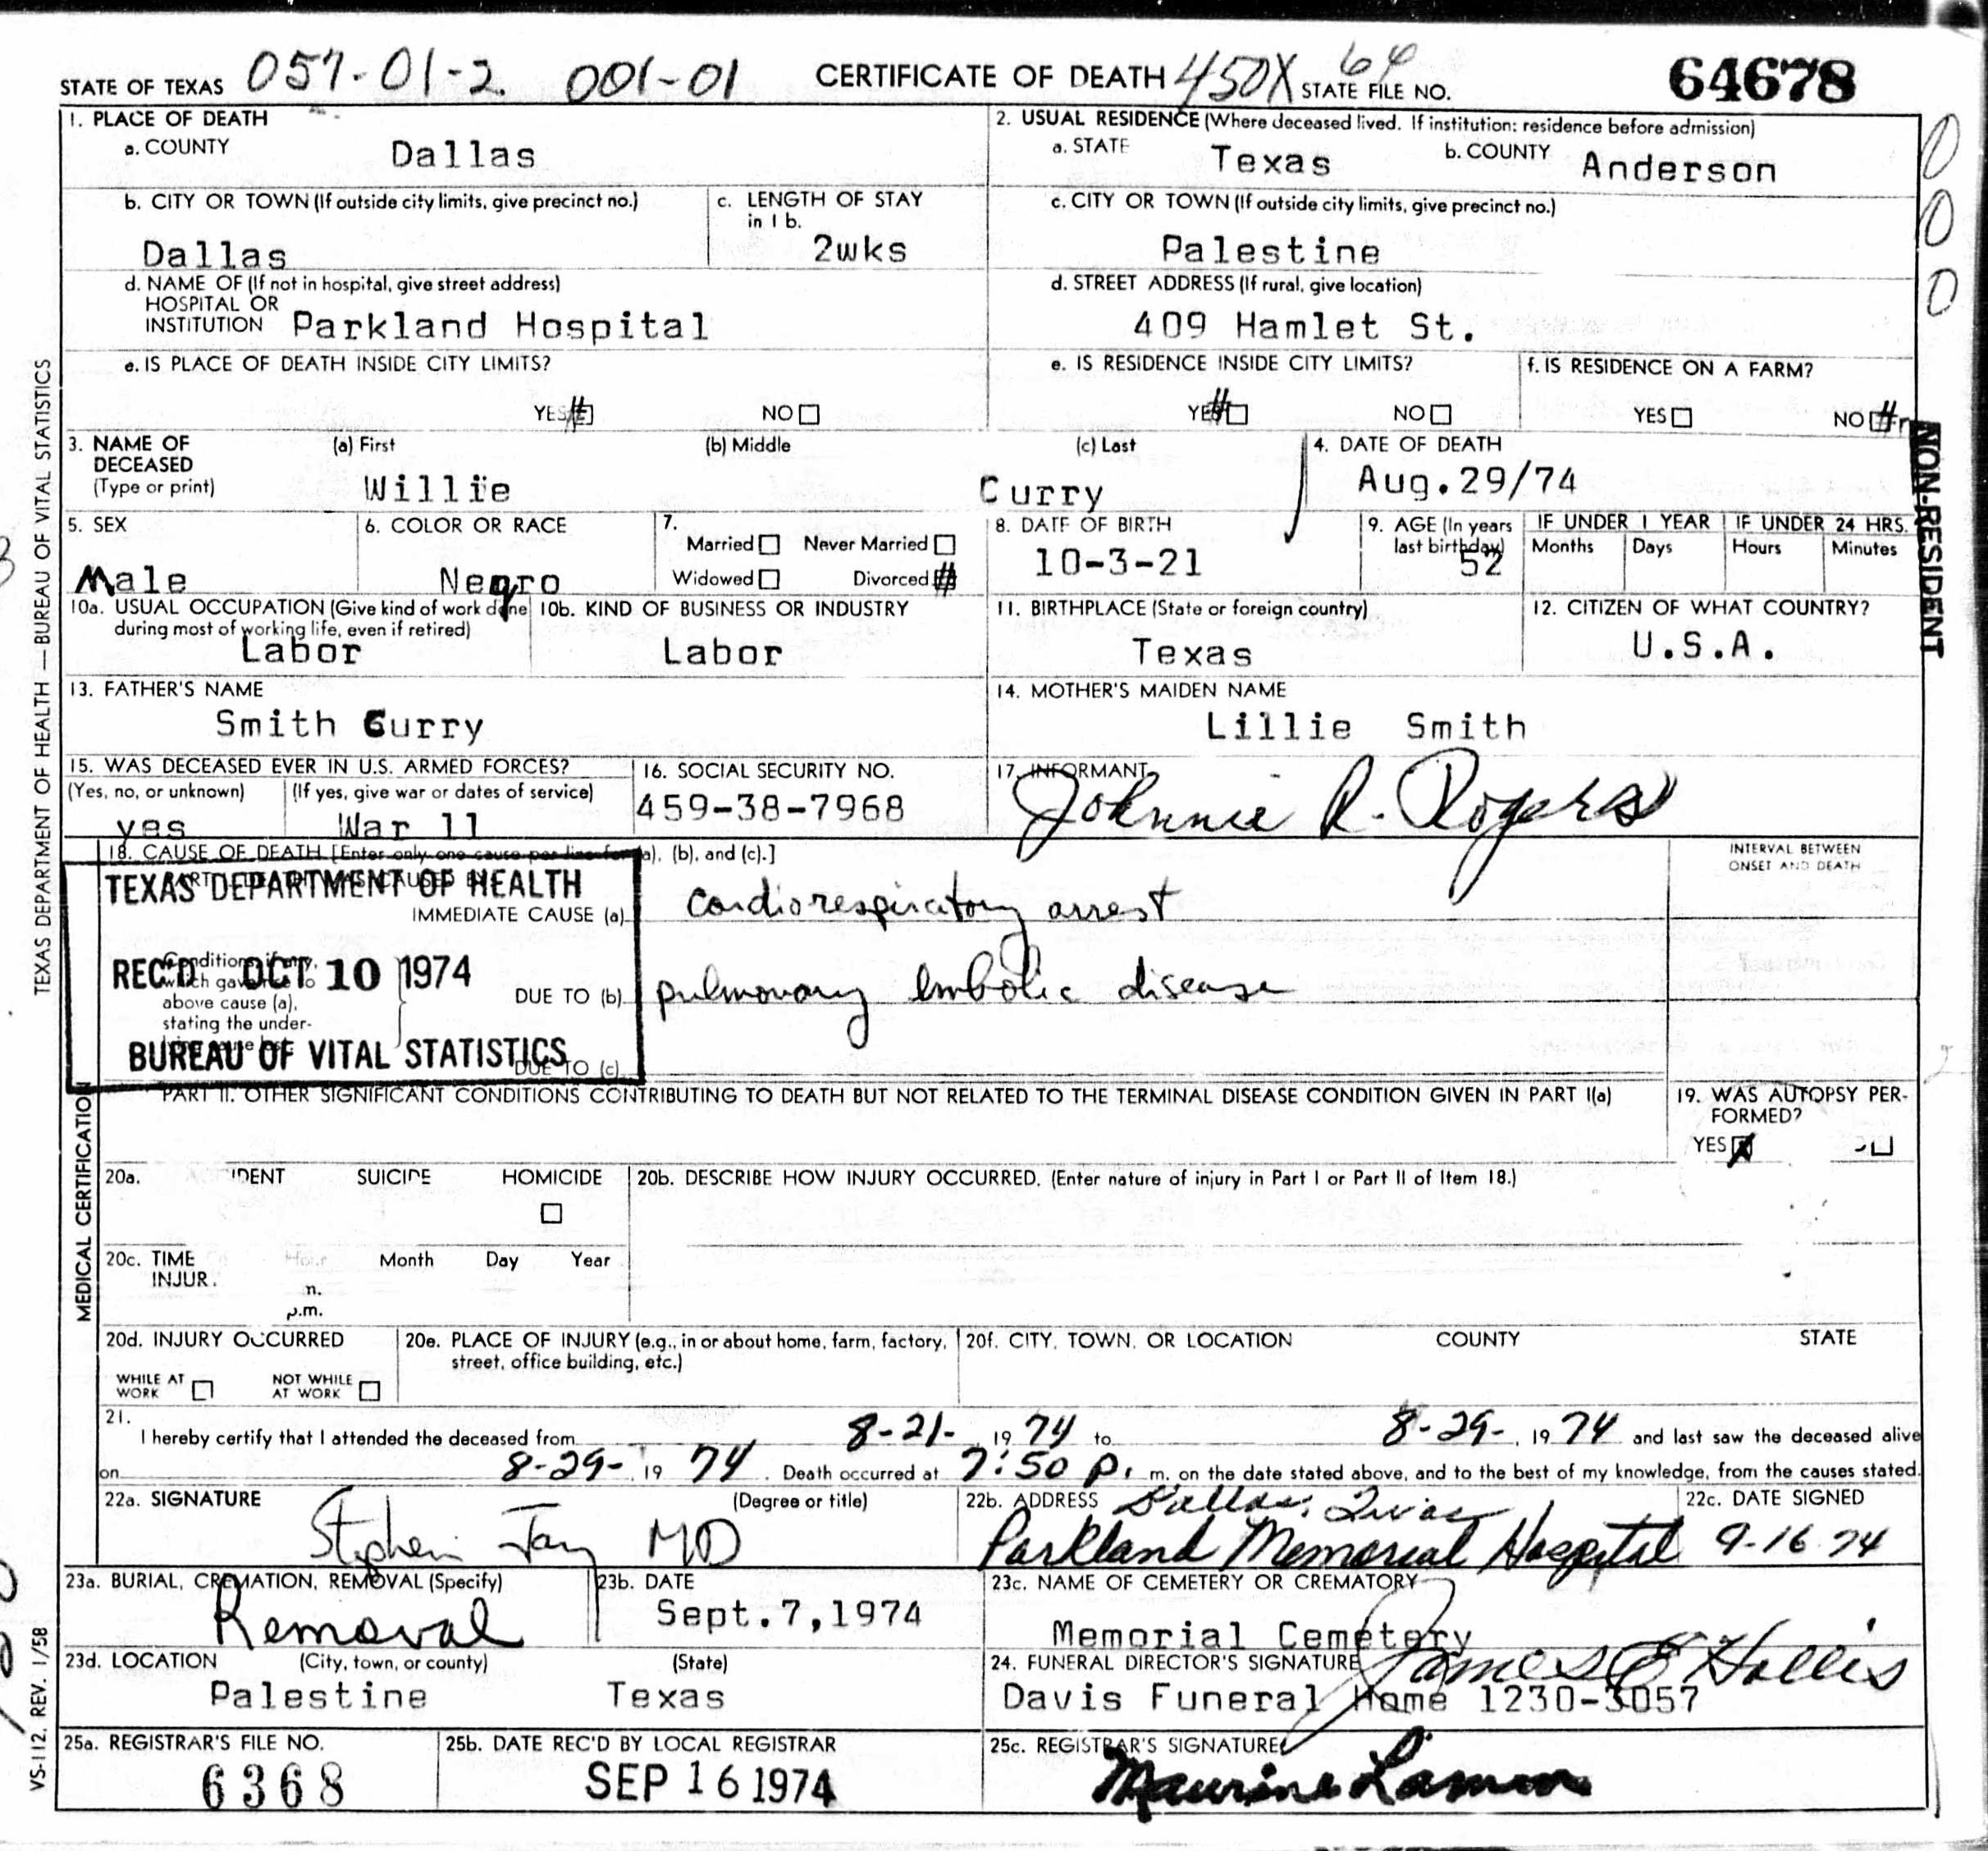 STATE OF TEXAS 057-01-2 001-01 CERTIFICATE OF DEATH 450X 64 STATE FILE NO. 64678
1. PLACE OF DEATH
a. COUNTY Dallas
2. USUAL RESIDENCE (Where deceased lived. If institution: residence before admission)
a. STATE Texas b. COUNTY Anderson
b. CITY OR TOWN (If outside city limits, give precinct no.) Dallas
c. LENGTH OF STAY in 1 b. 2wks
c. CITY OR TOWN (If outside city limits, give precinct no.)
Palestine
d. NAME OF (If not in hospital, give street address)
HOSPITAL OR
INSTITUTION Parkland Hospital
d. STREET ADDRESS (If rural, give location)
409 Hamlet St.
e. IS PLACE OF DEATH INSIDE CITY LIMITS?
YES NO
e. IS RESIDENCE INSIDE CITY LIMITS?
YES NO
f. IS RESIDENCE ON A FARM?
YES NO
0
0
0
NON-RESIDENT
3. NAME OF DECEASED (Type or print)
(a) First (b) Middle (c) Last
Willie Curry
4. DATE OF DEATH
Aug.29/74
5. SEX
Male
6. COLOR OR RACE
Negro
7.
Married Never Married
Widowed Divorced
8. DATE OF BIRTH
10-3-21
9. AGE (In years last birthday)
52
IF UNDER 1 YEAR IF UNDER 24 HRS.
Months Days Hours Minutes
10a. USUAL OCCUPATION (Give kind of work done
during most of working life, even if retired)
Labor
10b. KIND OF BUSINESS OR INDUSTRY
Labor
11. BIRTHPLACE (State or foreign country)
Texas
12. CITIZEN OF WHAT COUNTRY?
U.S.A.
13. FATHER'S NAME
Smith Curry
14. MOTHER'S MAIDEN NAME
Lillie Smith
15. WAS DECEASED EVER IN U.S. ARMED FORCES?
(Yes, no, or unknown) (If yes, give war or dates of service)
yes War 11
16. SOCIAL SECURITY NO.
459-38-7968
17. INFORMANT
Johnnie R. Rogers
18. CAUSE OF DEATH [Enter only one cause per line for (a), (b), and (c).]
INTERVAL BETWEEN
ONSET AND DEATH
TEXAS DEPARTMENT OF HEALTH
REC'D OCT 10 1974
BUREAU OF VITAL STATISTICS
IMMEDIATE CAUSE (a) cardiorespiratory arrest
Conditions, if any,
which gave rise to
above cause (a),
stating the under-
DUE TO (b) pulmonary embolic disease
DUE TO (c)
PART II. OTHER SIGNIFICANT CONDITIONS CONTRIBUTING TO DEATH BUT NOT RELATED TO THE TERMINAL DISEASE CONDITION GIVEN IN PART I(a)
19. WAS AUTOPSY PER-
FORMED?
YES
20a. IDENT SUICIDE HOMICIDE
20b. DESCRIBE HOW INJURY OCCURRED. (Enter nature of injury in Part I or Part II of Item 18.)
20c. TIME Hour Month Day Year
INJUR
p.m.
20d. INJURY OCCURRED
WHILE AT WORK NOT WHILE AT WORK
20e. PLACE OF INJURY (e.g., in or about home, farm, factory,
street, office building, etc.)
20f. CITY, TOWN, OR LOCATION COUNTY STATE
21.
I hereby certify that I attended the deceased from 8-21-, 19 74 to 8-29-, 19 74 and last saw the deceased alive
on 8-29-, 19 74. Death occurred at 7:50 p. m. on the date stated above, and to the best of my knowledge, from the causes stated.
22a. SIGNATURE (Degree or title)
Stephen Jay MD
22b. ADDRESS Dallas, Texas
Parkland Memorial Hospital
22c. DATE SIGNED
9-16 74
23a. BURIAL, CREMATION, REMOVAL (Specify)
Removal
23b. DATE
Sept.7,1974
23c. NAME OF CEMETERY OR CREMATORY
Memorial Cemetery
23d. LOCATION (City, town, or county) (State)
Palestine Texas
24. FUNERAL DIRECTOR'S SIGNATURE James E Hollis
Davis Funeral Home 1230-3057
25a. REGISTRAR'S FILE NO.
6368
25b. DATE REC'D BY LOCAL REGISTRAR
SEP 16 1974
25c. REGISTRAR'S SIGNATURE
Maurine
TEXAS DEPARTMENT OF HEALTH — BUREAU OF VITAL STATISTICS
MEDICAL CERTIFICATION
VS-112. REV. 1/58